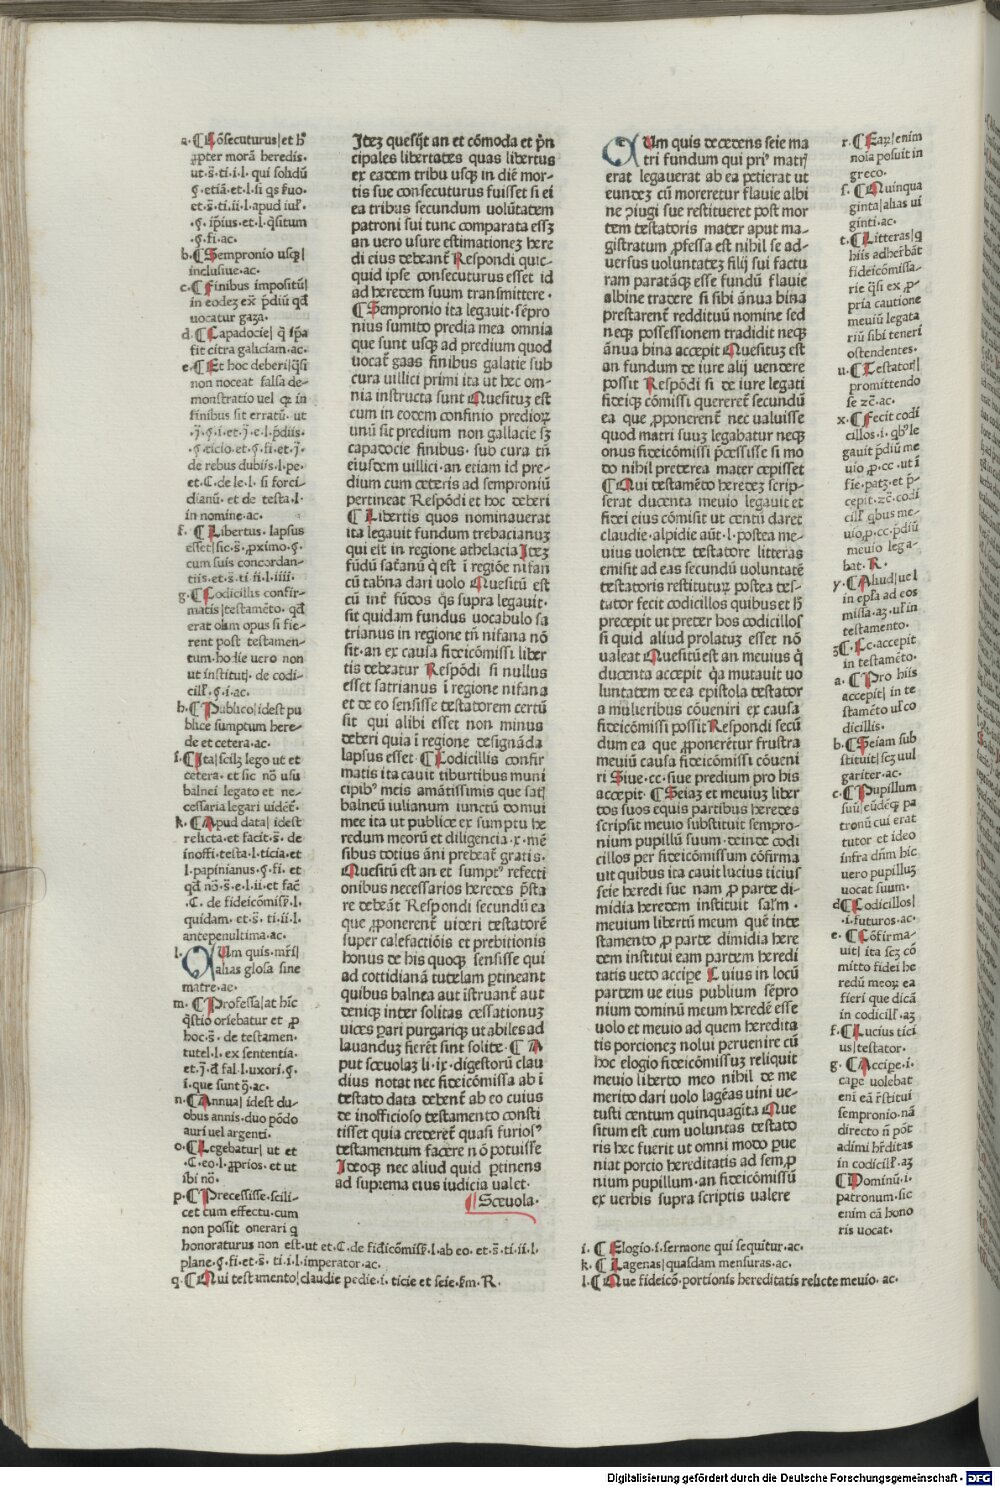 a. ¶ Cōsecuturus|et hͦ
ꝓpter morā heredis.
ut.s̄.ti.i.l. qui solidū
.§.etiā.et.l.si qs ẜuo.
et.s̄.ti.ii.l.apud iul̄.
.§. ip̄ius.et.l.q̄situm
.§.fi.ac.
b. ¶ Sempronio usq̄|
inclusiue.ac.
c. ¶ Finibus impositū|
in eodeʒ ex p̄diū qđ
uocatur gaʒa.
d. ¶ Capadocie| q̄ ip̄a
fit citra galiciam.ac.
e. ¶ Et hoc deberi|q̄si
non noceat falsa de-
monstratio uel qꝛ in
finibus sit erratū. ut
de rebus dubiis.l.pe.
et.C.de le.l. si forci-
dianū. et de testa.l.
in nomine.ac.
f. ¶ Libertus. lapsus
esset|sic.s̄.ꝓximo.§.
cum suis concordan-
tiis.et.s̄.ti.ii.l.iiii.
g. ¶ Codicillis confir-
matis|testamēto. qđ
erat olim opus si fie-
rent post testamen-
tum.hodie uero non
ut institutꝭ. de codi-
cill̄.§.i.ac.
h. ¶ Publico|idest pu
blice sumptum here-
de et cetera.ac.
i. ¶ Ita|scilʒ lego ut et
cetera. et sic nō usu
balnei legato et ne-
cessaria legari uidēt̄.
k. ¶ Apud data| idest
relicta.et facit.s̄. de
inoffi.testa.l.ticia.et
l.papinianus.§.fi. et
qđ nō.s̄.e.l.ii.et fac̄
.C. de fideicōmiss̄.l.
quidam. et.s̄.ti.ii.l.
antepenultima.ac.
l. QUm quis.mr̄i|
alias glosa sine
matre.ac.
m. ¶ Professa|at hīc
q̄stio oriebatur et ꝓ
hoc.s̄. de testamen.
tutel.l. ex sententia.
i.que sunt ꝗ.ac.
n. ¶ Annua| idest du-
obus annis.duo pōdo
auri uel argenti.
o. ¶ Legebatur| ut et
.C.eo.l.ꝓprios.et ut
ibi nō.
p. ¶ Precessisse.scili-
cet cum effectu.cum
non possit onerari q
honoraturus non est.ut et.C.de fidicōmiss̄.l.ab eo. et.s̄.ti.ii.l.
plane.§.fi.et.s̄. ti.i.l.imperator.ac.
q. ¶ Qui testamento|claudie pedie.i. ticie et seie.ẜm. R.
Iteʒ quesijt an et cōmoda et p̄n
cipales libertates quas libertus
ex eadem tribu usq̄ in diē mor-
tis sue consecuturus fuisset si ei
ea tribus secundum volūtatem
patroni sui tunc comparata esseʒ
an vero usure estimationeʒ here
di eius debeant Respondi quic-
quid ipse consecuturus esset id
ad heredem suum transmittere.
¶ Sempronio ita legauit.sēpro
nius sumito predia mea omnia
que sunt usq̄ ad predium quod
uocat̄ gaas finibus galatie sub
cura uillici primi ita ut hec om-
nia instructa sunt Quesituʒ est
cum in eodem confinio predioꝝ
unū sit predium non gallacie sʒ
capadocie finibus. sub cura tn̄
eiusdem uillici. an etiam id pre-
dium cum ceteris ad semproniū
pertineat Respōdi et hoc deberi
¶ Libertis quos nominauerat
ita legauit fundum trebacianuʒ
qui eit in regione athelacia Iteʒ
fūdū satr̄anū q̄ est ī regiōe nifan
cū tabn̄a dari uolo Quesitū est
cū int̄ fūdos q̄s supra legauit.
sit quidam fundus vocabulo sa
trianus in regione tn̄ nifana nō
sit.an ex causa fideicōmissi liber
tis debeatur Respōdi si nullus
esset satrianus ī regione nifana
et de eo sensisse testatorem certū
sit qui alibi esset non minus
deberi quia ī regione designāda
lapsus esset. ¶ Codicillis confir
matis ita cavit tiburtibus muni
cipibꝰ meis amātissimis que sat|
balneū iulianum iunctū domui
mee ita ut publice ex sumptu he
redum meorū et diligencia.x.mē
sibus totius āni prebeat̄ gratis.
Quesitū est an et sumpꝰ refecti
onibus necessarios heredes p̄sta
re debeāt Respōdi secundū ea
que ꝓponerent̄ uideri testatorē
super calefactiōis et prebitionis
honus de his quoq̄ sensisse qui
ad cottidianā tutelam ꝑtineant
quibus balnea aut īstruant̄ aut
deniq̄ inter solitas cessationuʒ
vices ꝑari purgariq̄ ut abiles ad
lauanduʒ fierēt sint solite. ¶ A
put sceuolaʒ li.ix.digestorū clau
dius notat nec fideicōmissa ab ī
testato data debent̄ ab eo cuius
de inofficioso testamento consti
tisset quia crederet̄ quasi furiosꝰ
testamentum facere nō potuisse
Ideoq̄ nec aliud quid ꝑtinens
ad suprema eius iudicia valet.
¶ Sceuola.
QUm quis decedens seie ma
tri fundum qui priꝰ matrꝭ
erat legauerat ab ea petierat ut
eundeʒ cū moreretur flauie albi
ne ꝯiugi sue restitueret post mor
tem testatoris mater aput ma-
gistratum ꝓfessa est nihil se ad-
versus uoluntateʒ filij sui factu
ram paratāq̄ esse fundū flauie
albine tradere si sibi ānua bina
prestarent̄ reddituū nomine sed
neq̄ possessionem tradidit neq̄
ānua bina accepit Quesituʒ est
an fundum de iure alij vendere
possit Respōdi si de iure legati
fideiq̄ cōmissi quereret̄ secundū
ea que ꝓponerent̄ nec ualuisse
quod matri suuʒ legabatur neq̄
onus fideicōmissi p̄cessisse si mo
do nihil preterea mater cepisset
¶ Qui testamēto heredeʒ scrip-
serat ducenta meuio legauit et
fidei eius cōmisit ut centū daret
claudie.alpidie aūt.l.postea me-
vius volente testatore litteras
emisit ad eas secundū uoluntatē
testatoris restituturꝰ postea tes-
tator fecit codicillos quibus et hͦ
precepit ut preter hos codicillos
si quid aliud prolatuʒ esset nō
valeat Quesitū est an meuius q̄
ducenta accepit q̄a mutauit uo
luntatem de ea epistola testator
a mulieribus cōueniri ex causa
fideicōmissi possit Respondi secū
dum ea que ꝓponerētur frustra
meuiū causa fideicōmissi cōueni
ri Siue.cc.siue predium pro his
accepit. ¶ Seiaʒ et meuiuʒ liber
tos suos equis partibus heredes
scripsit meuio substituit sempro-
nium pupillū suum.deinde codi
cillos per fideicōmissum cōfirma
vit quibus ita cavit lucius ticius
seie heredi sue nam ꝓ parte di-
midia heredem instituit salm̄.
meuium libertū meum quē inte
stamento ꝓ parte dimidia here
dem institui eam partem heredi
tatis veto accipe Cuius in locū
partem ve eius publium sēpro
nium dominū meum heredē esse
volo et meuio ad quem heredita
tis porcioneʒ nolui peruenire cū
hoc elogio fideicōmissuʒ reliquit
meuio liberto meo nihil de me
merito dari volo lagēas vini ve-
tusti centum quinquagīta Que
situm est cum voluntas testato
ris hec fuerit ut omni modo ꝑue
niat porcio hereditatis ad semꝓ
nium pupillum.an fideicōmissū
ex verbis supra scriptis valere
r. ¶ Eaꝝ|enim
noia posuit in
greco.
s. ¶ Quinqua
ginta|alias ui
ginti.ac.
t. ¶ Litteras|q
hiis adher̄bāt
fideicōmissa-
rie q̄si ex ꝓ-
pria cautione
meuiū legata
riū sibi teneri
ostendentes.
u. ¶ Testator|
promittendo
se ʒc̄.ac.
x. ¶ Fecit codi
cillos.i.qbꝰ le
gauit p̄diū me
uio ꝓ.cc.ut ī
cepit.ʒc̄.codi
cill̄ qbus me-
uio.ꝓ.cc.p̄diū
meuio lega-
bat. R.
y. ¶ Aliud|uel
in epl̄a ad eos
missa.aʒ.ul̄ in
testamento.
ʒ. ¶ Cc.accepit
in testamēto.
a. ¶ Pro hiis
accepit| in te
stamēto ul̄ co
dicillis.
b. ¶ Seiam sub
stituit|scʒ uul
gariter.ac.
c. ¶ Pupillum
suū|eūdēq̄ pa
tronū cui erat
tutor et ideo
infra dn̄m hīc
uero pupilluʒ
uocat suum.
d. ¶ Codicillos|
.i.futuros.ac.
e. ¶ Cōfirma-
uit| ita scʒ cō
mitto fidei he
redū meoꝝ ea
fieri que dicā
in codicill̄.aʒ
f. ¶ Lucius tici
us|testator.
g. ¶ Accipe.i.
cape uolebat
eni eā r̄stitui
sempronio.nā
directo nō pōt
adimi hr̄ditas
in codicill̄.aʒ
¶ Dominū.i.
patronum.sic
enim eā hono
ris uocat.
i. ¶ Elogio.i.sermone qui sequitur.ac.
k. ¶ Lagenas|quasdam mensuras.ac.
l. ¶ Que fideicō.portionis hereditatis relicte meuio. ac.
Digitalisierung gefördert durch die Deutsche Forschungsgemeinschaft - DFG